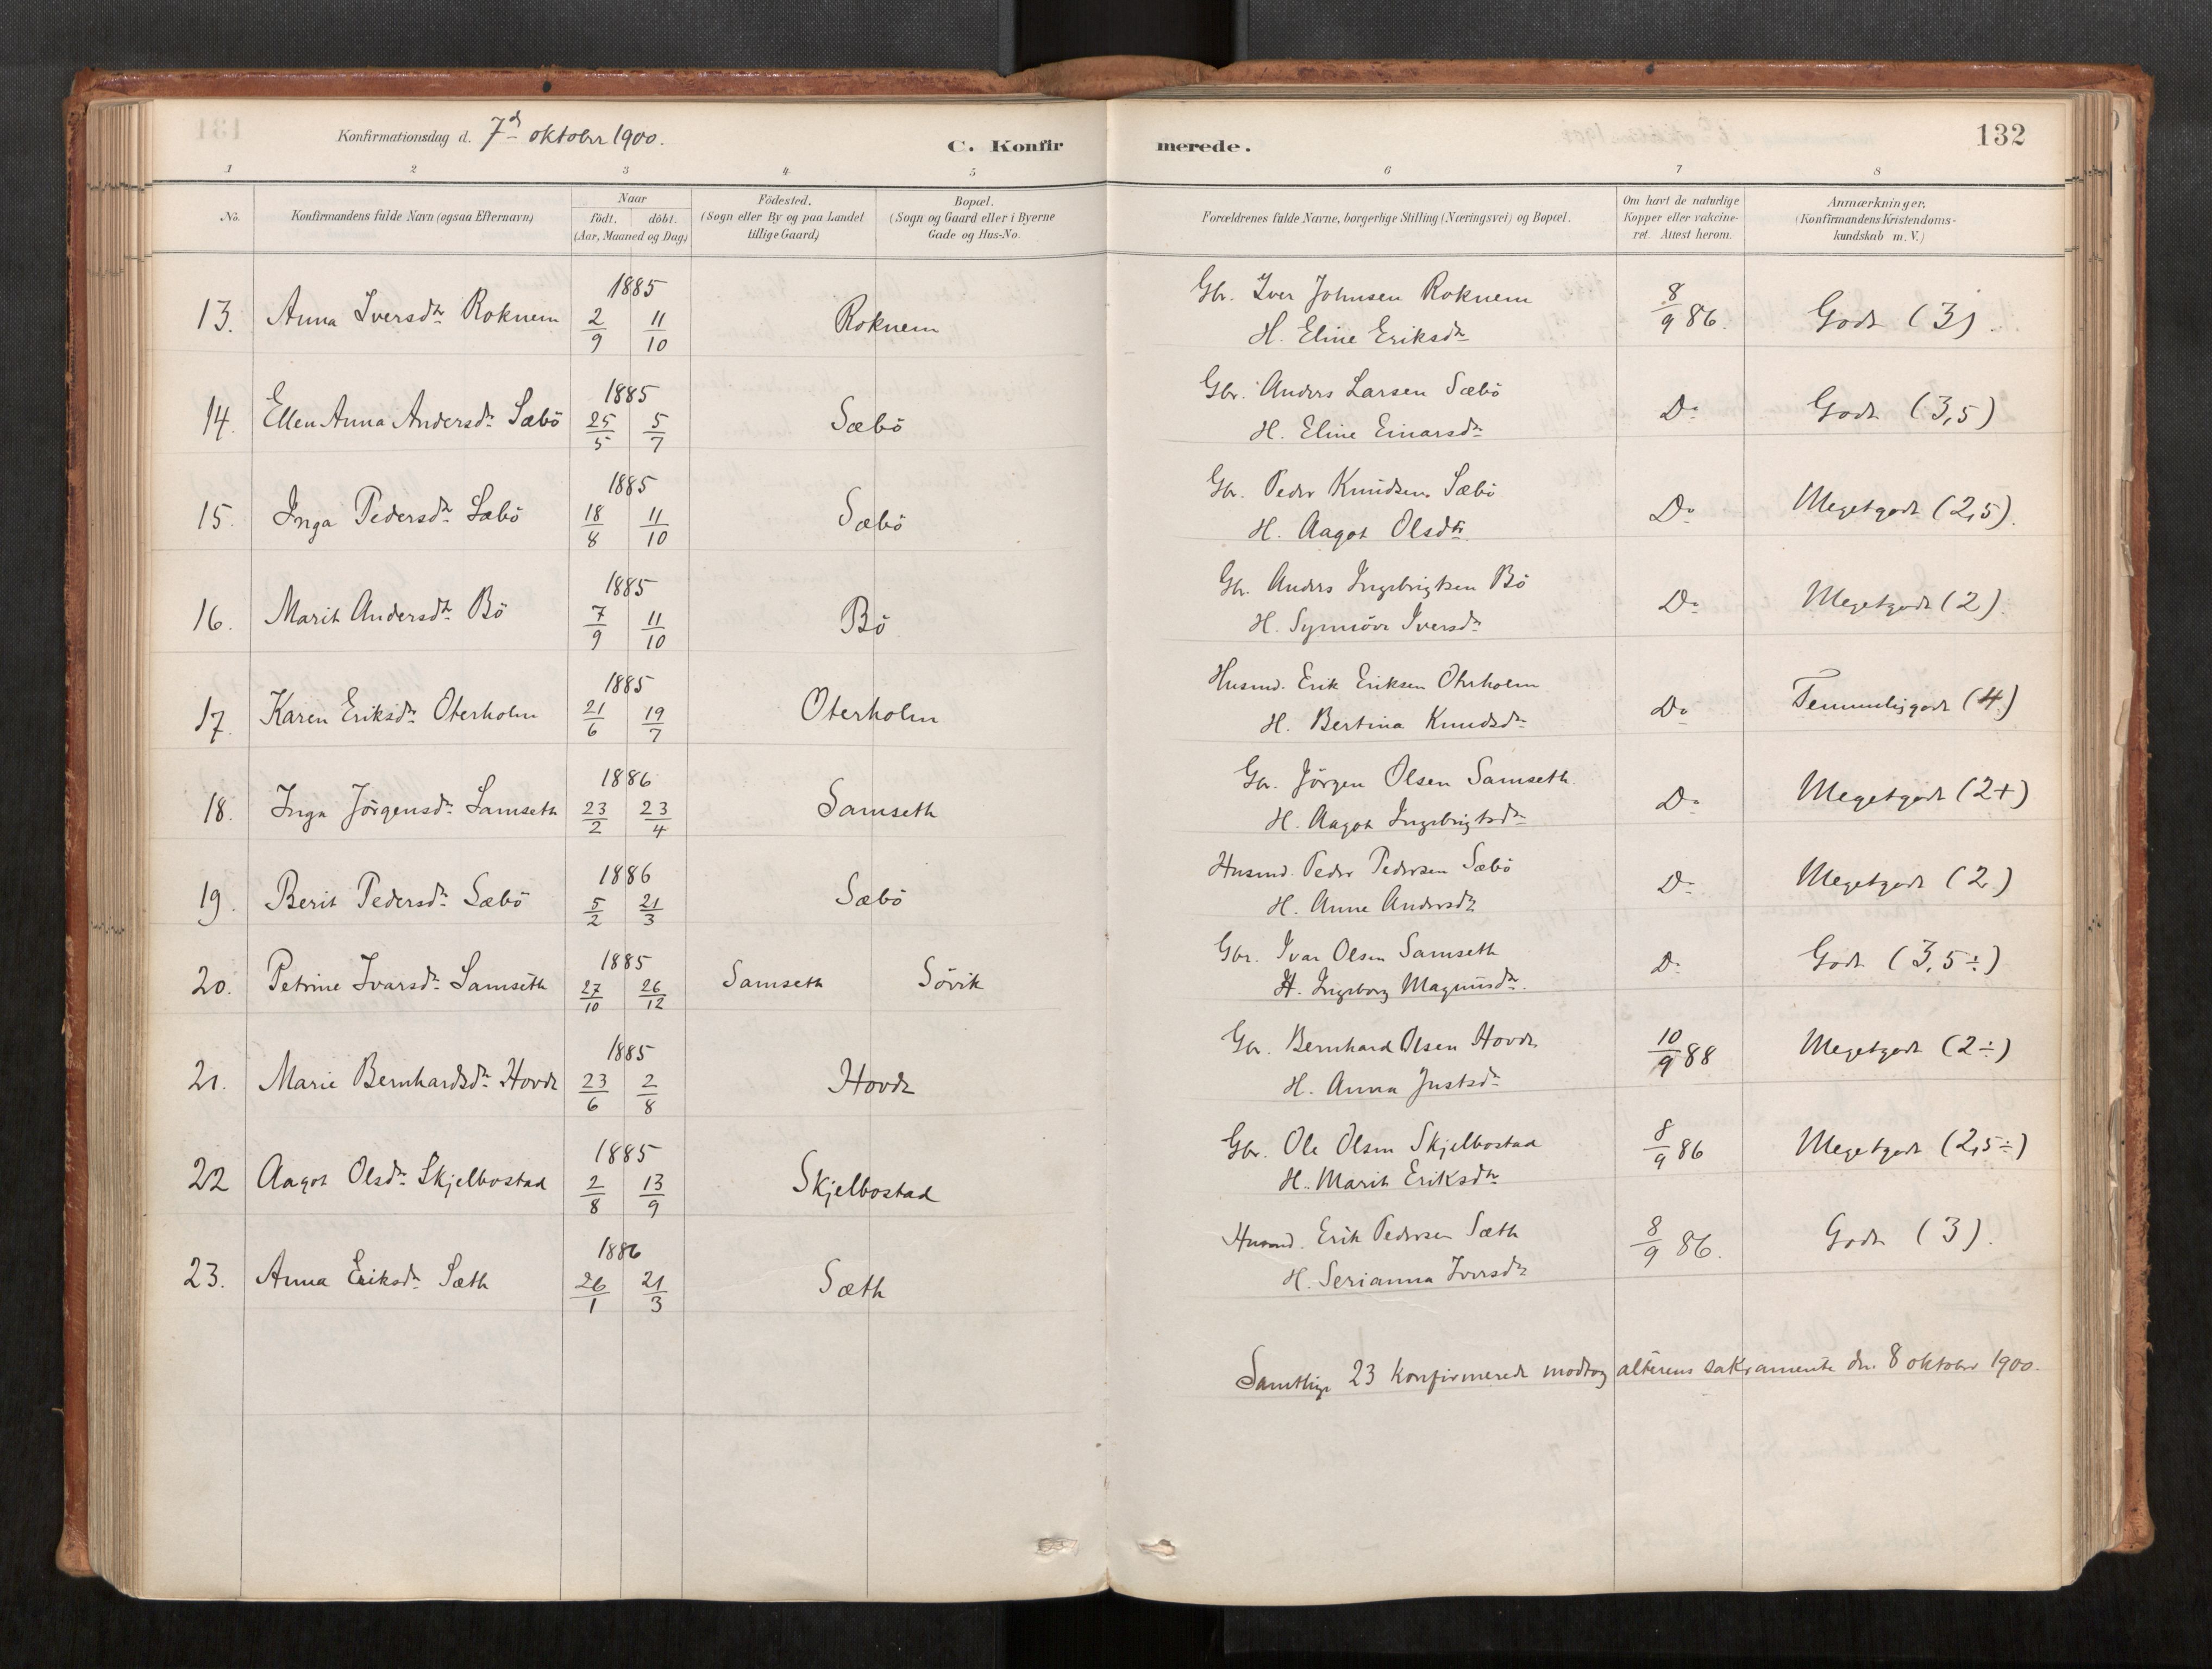 Konfirmationsdag d. 7d oktober 1900.
C. Konfirmerede.
132
1 2 3 4 5 6 7 8
No.
Konfirmandens fulde Navn (ogsaa Efternavn)
Naar
födt. döbt.
(Aar, Maaned og Dag)
Födested.
(Sogn eller By og paa Landet
tillige Gaard)
Bopæl.
(Sogn og Gaard eller i Byerne
Gade og Hus-No.
Forældrenes fulde Navne, borgerlige Stilling (Næringsvei) og Bopæl.
Om havt de naturlige
Kopper eller vakcine-
ret. Attest herom.
Anmærkninger,
(Konfirmandens Kristendoms-
kundskab m. V.)
13. Anna Iversdtr Roknem 1885 2/9 11/10 Roknem Gbr. Iver Johnsen Roknem 8/9 86. Godt (3).
H. Eline Eriksdtr
14. Ellen Anna Andersdr Sæbö 1885 25/5 5/7 Sæbö Gbr. Anders Larsen Sæbö Do Godt (3,5)
H. Eline Einarsdr
15. Inga Pedersdr Sæbö 1885 18/8 11/10 Sæbö Gbr. Peder Knudsen Sæbö Do Megetgodt (2,5).
H. Aagot Olsdtr
16. Marit Andersdtr Bö 1885 7/9 11/10 Bö Gbr. Anders Ingebrigtsen Bö Do Megetgodt (2).
H. Synnöve Iversdr
17. Karen Eriksdr Oterholm 1885 21/6 19/7 Oterholm Husmd. Erik Eriksen Oterholm Do Temmeligodt (4)
H. Bertina Knudsdr
18. Inga Jörgensdr Samseth 1886 23/2 23/4 Samseth Gbr. Jörgen Olsen Samseth Do Megetgodt (2+)
H. Aagot Ingebrigtsdr
19. Berit Pedersdr Sæbö 1886 5/2 21/3 Sæbö Husmd. Peder Pedersen Sæbö Do Megetgodt (2)
H. Anne Andersdtr
20. Petrine Ivarsdr Samseth 1885 27/10 26/12 Samseth Sövik Gbr. Ivar Olsen Samseth Do Godt (3,5÷)
H. Ingeborg Magnusdr.
21. Marie Bernhardsdr Hovde 1885 23/6 2/8 Hovde Gbr. Bernhard Olsen Hovde 10/9 88 Megetgodt (2÷)
H. Anna Justsdr
22 Aagot Olsdr Skjelbostad 1885 2/8 13/9 Skjelbostad Gbr. Ole Olsen Skjelbostad 8/9 86 Megetgodt (2,5÷)
H. Marit Eriksdtr
23. Anna Eriksdr Sæth 1886 26/1 21/3 Sæth Husmd. Erik Pedersen Sæth 8/9 86. Godt (3).
H. Serianna Iversdtr
Samtlige 23 konfirmerede modtog alterens sakramente den 8 oktober 1900.